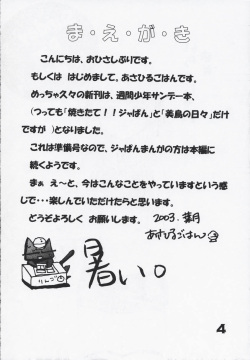 ま・え・が・き
こんにちは、おひさしぶりです。
もしくは はじめまして。あさひるごはんです。
めっちゃスクの新刊は、週間少年サンデー本、
(つっても「焼きたて！！ジャぱん」と「美鳥の日々」だけ
ですが)となりました。
これは準備号なので、ジャぱんまんがの方は本編に
続くようです。
まぁ え〜と、今はこんなことをやっていますという感
じで・・・楽しんでいただけたらと思います。
どうぞよろしく お願いします。 2003.葉月
あさひるごはん
暑い。
りんご
4